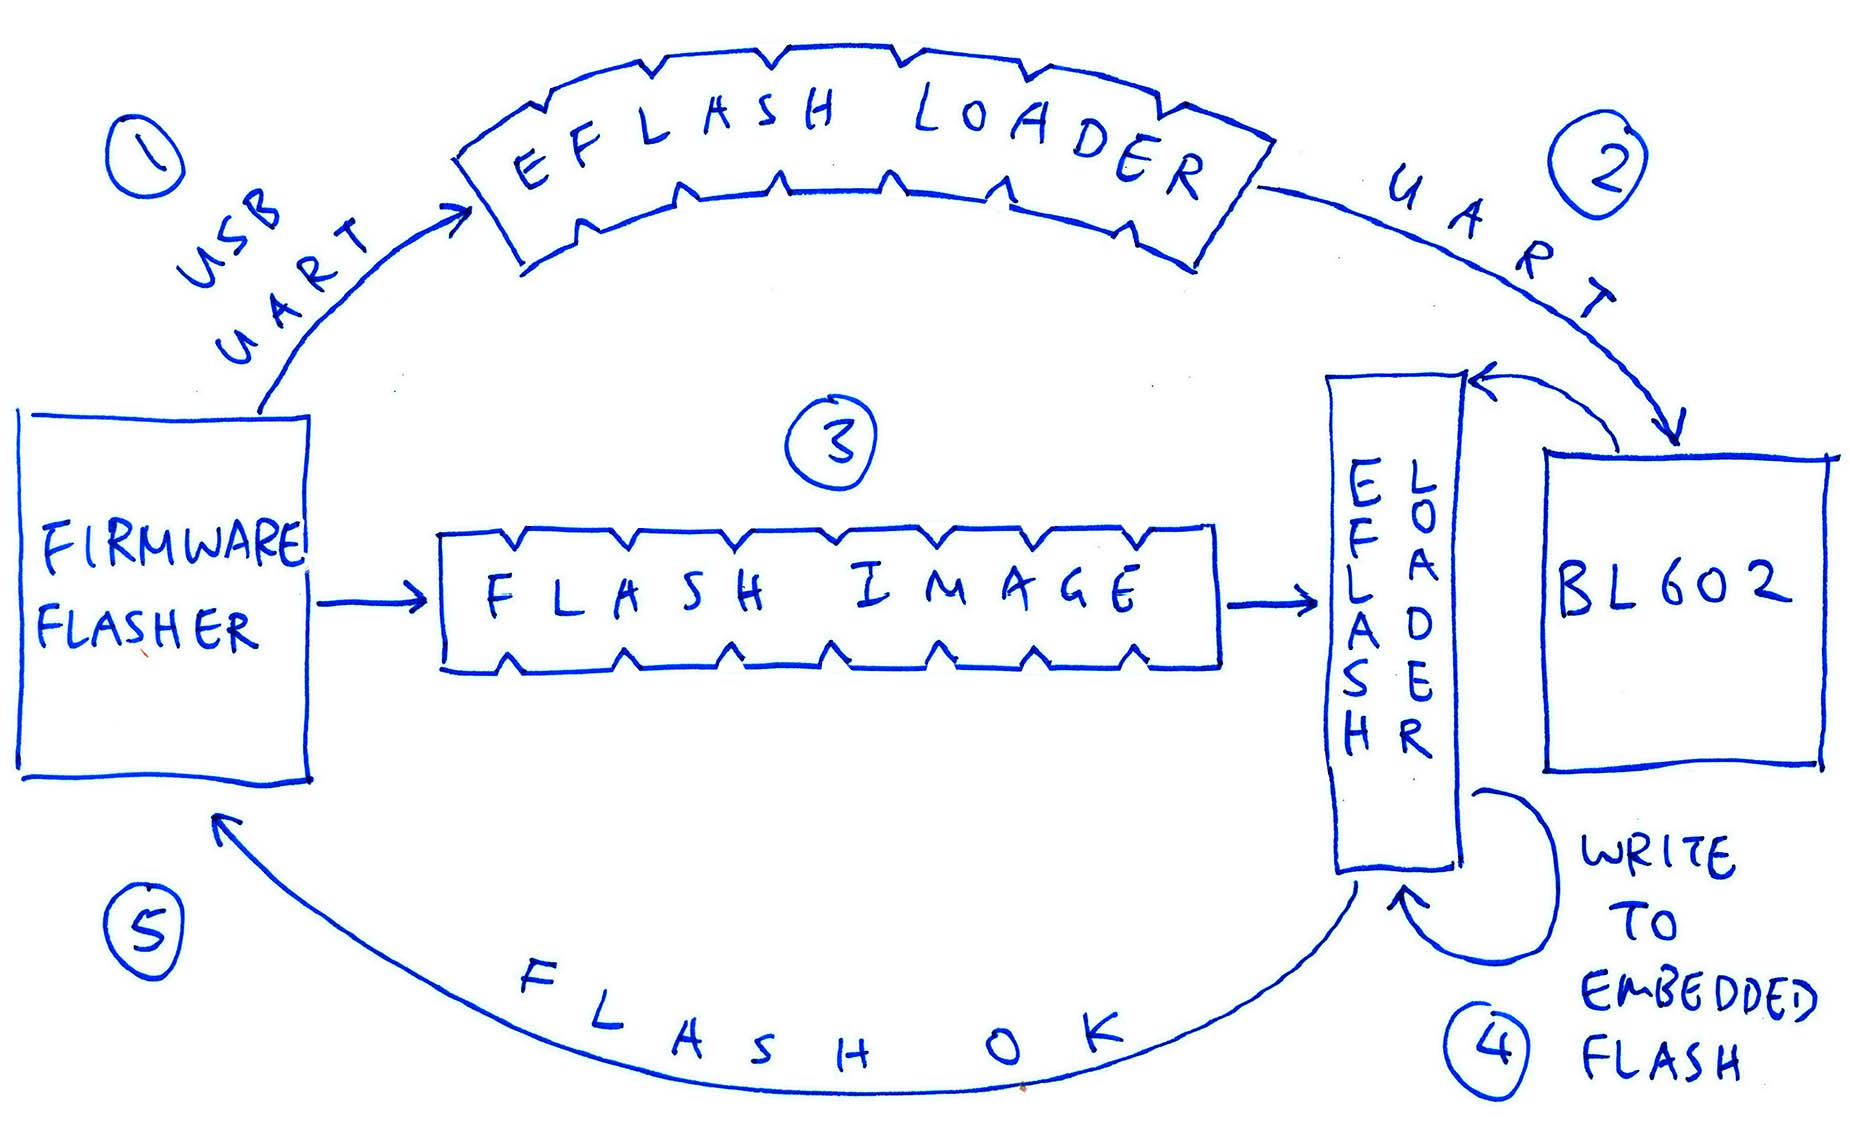 1
USB
UART
EFLASH LOADER
UART
2
3
FIRMWARE
FLASHER
FLASH IMAGE
EFLASH
LOADER
BL602
WRITE
TO
EMBEDDED
FLASH
4
5
FLASH OK